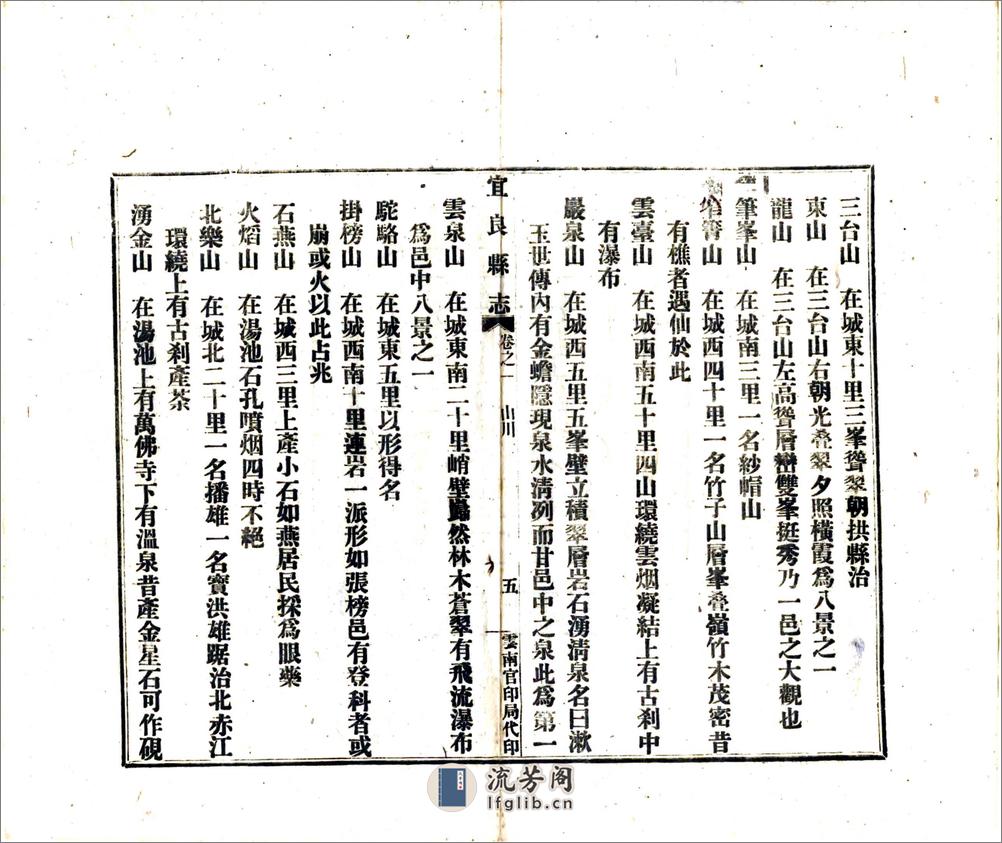 三台山　在城東十里三峯聳翠朝拱縣治
東山　在三台山右朝光叠翠夕照橫霞爲八景之一
龍山　在三台山左高聳層巒雙峯挺秀乃一邑之大觀也
筆峯山　在城南三里一名紗帽山
筲山　在城西四十里一名竹子山層峯叠嶺竹木茂密昔
有樵者遇仙於此
雲臺山　在城西南五十里四山環繞雲烟凝結上有古刹中
有瀑布
巖泉山　在城西五里五峯壁立積翠層岩石湧清泉名曰漱
玉世傳內有金蟾隱現泉水清冽而甘邑中之泉此爲第一
宜良縣志　卷之一　山川　五　雲南官印局代印
雲泉山　在城東南二十里峭壁巋然林木蒼翠有飛流瀑布
爲邑中八景之一
駝駱山　在城東五里以形得名
掛榜山　在城西南十里連岩一派形如張榜邑有登科者或
崩或火以此占兆
石燕山　在城西三里上產小石如燕居民採爲眼藥
火熖山　在湯池石孔噴烟四時不絕
北樂山　在城北二十里一名播雄一名寶洪雄踞治北赤江
環繞上有古刹產茶
湧金山　在湯池上有萬佛寺下有溫泉昔產金星石可作硯
流芳阁
lfglib.cn